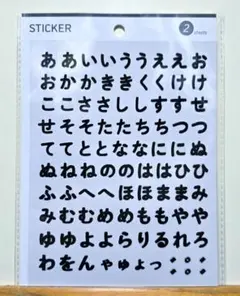 STICKER
2
sheets
ああいいううええお
おかかききくくけけ
ここささししすすせ
せそそたたちちつつ
ててととななににぬ
ぬねねののははひひ
ふふへへほほままみ
みむむめめももやや
ゆゆよよらりるれろ
わをんゃゅょっ゛゜